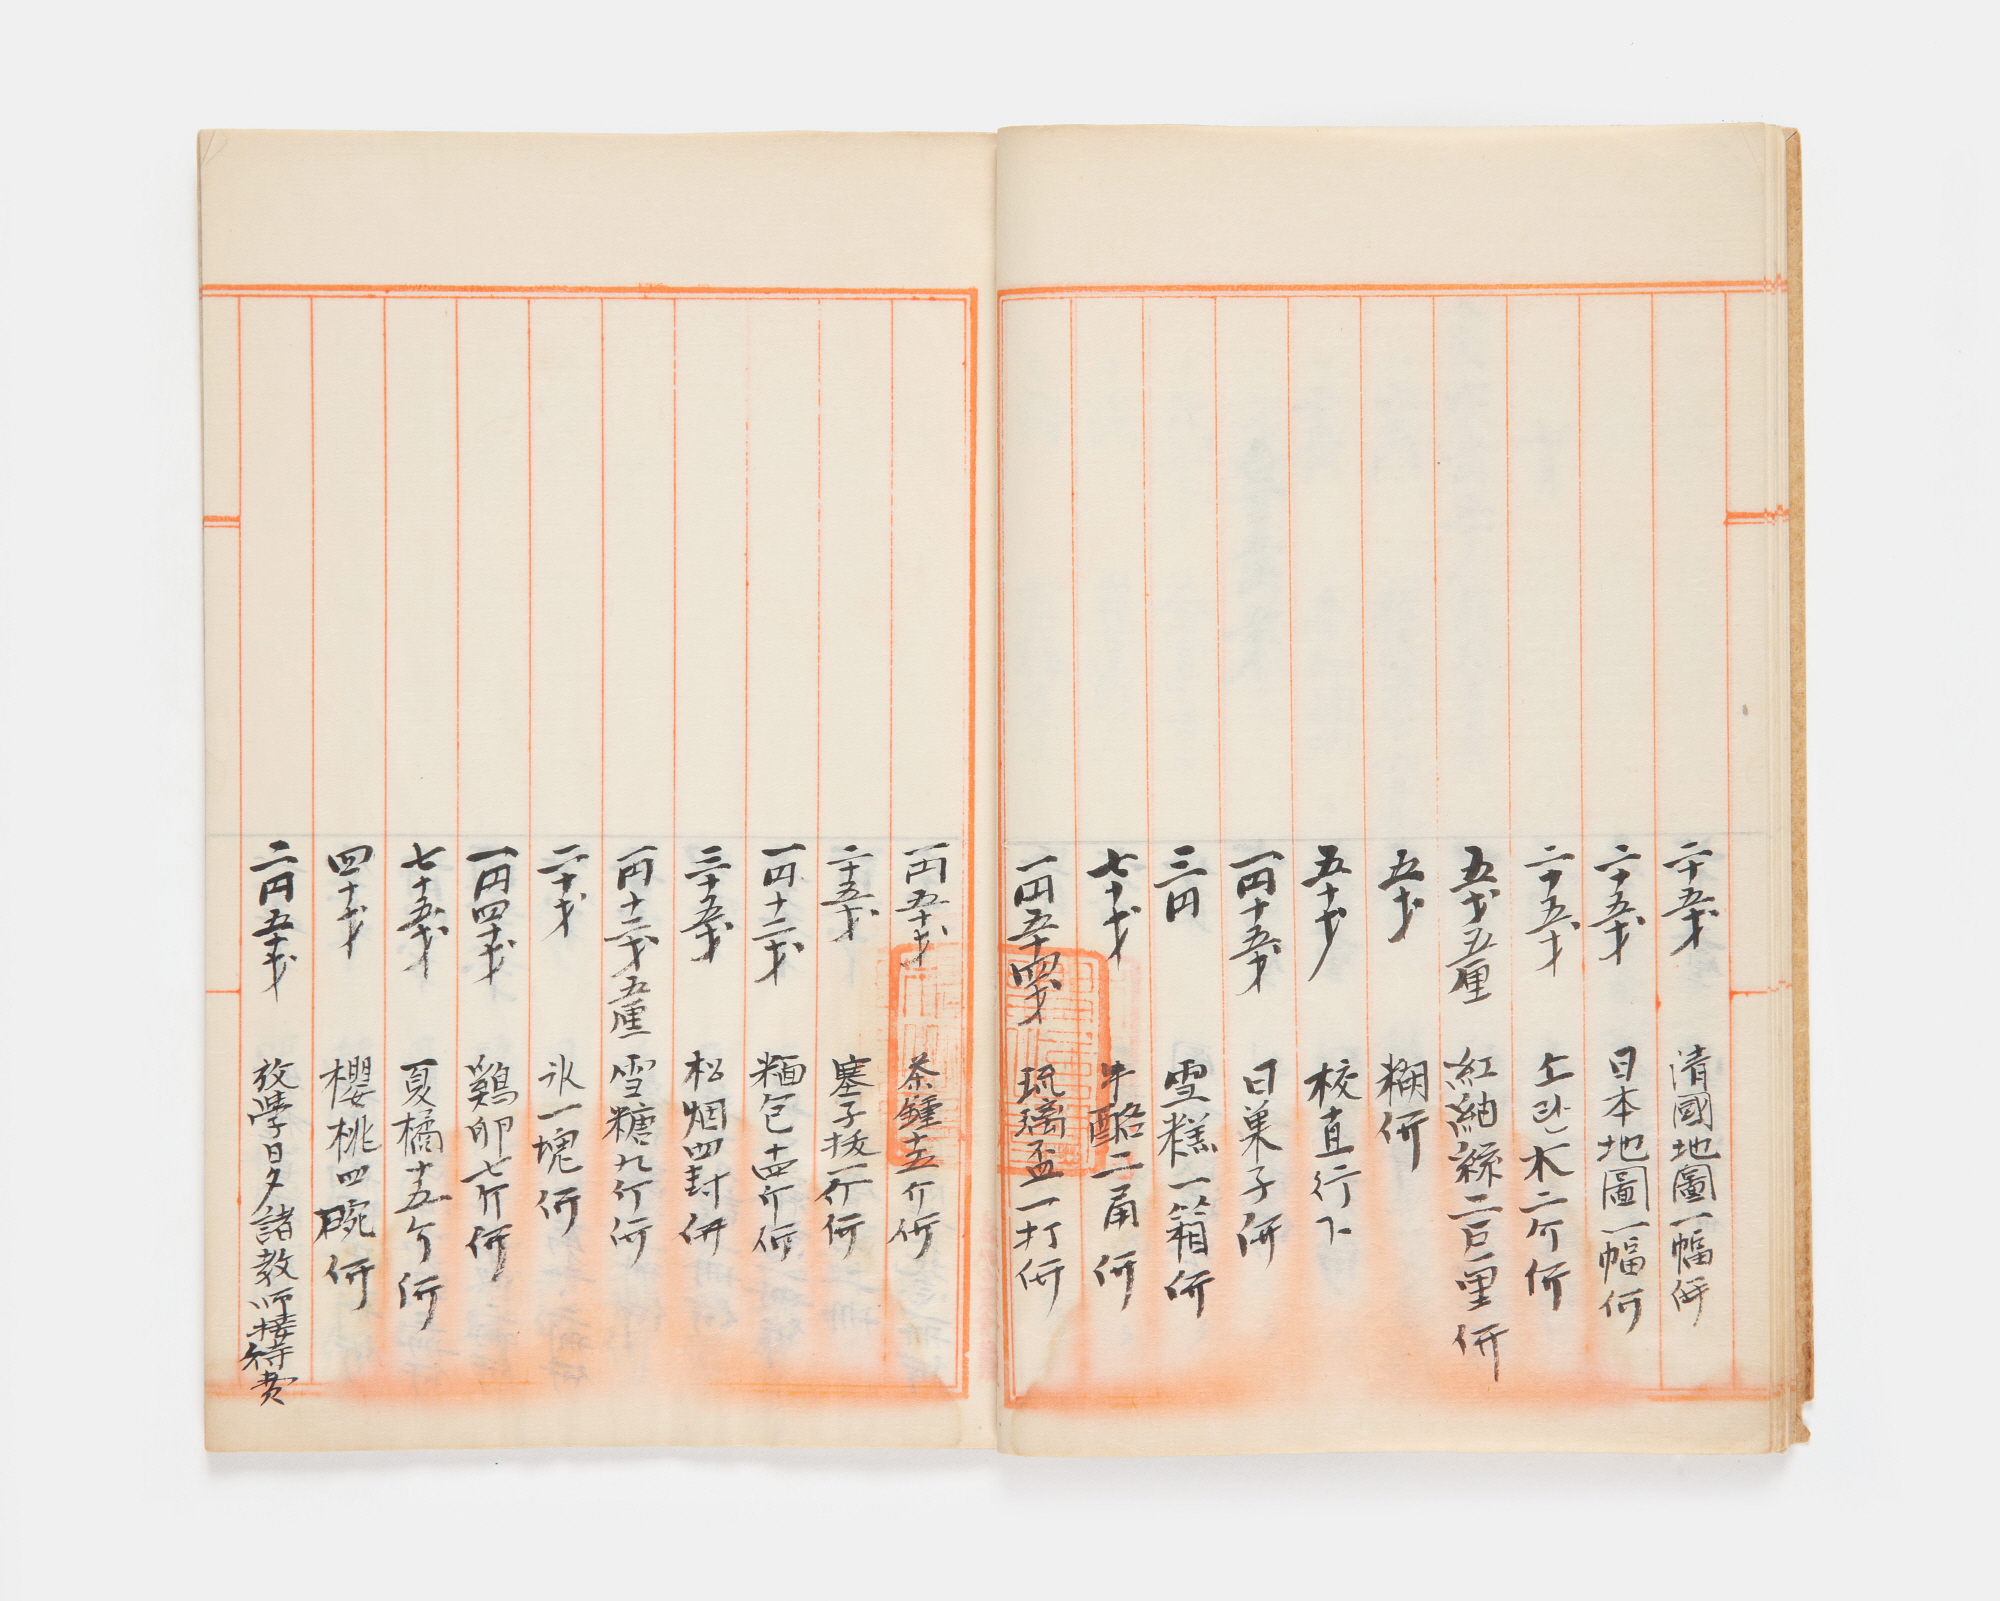 二十五戔 清國地圖一幅価
二十五戔 日本地圖一幅価
二十五戔 소란木二介価
五戔五厘 紅紬絲 価
五戔 糊価
五十戔 校直行下
一円十五戔 日菓子価
三円 雪糕一箱価
七十戔 牛酪二甬価
一円五十四戔 琉璃盃一打価
一円五十戔 茶鍾十五介価
二十五戔 塞子拔一介価
一円十二戔 麵包十四介価
三十五戔 松烟四封価
一円十二戔五厘 雪糖九斤価
二十戔 氷一塊価
一円四十戔 鷄卵七介価
七十五戔 夏橘十五介価
四十戔 櫻桃四碗価
二円五十戔 放學日夕諸教師接待費